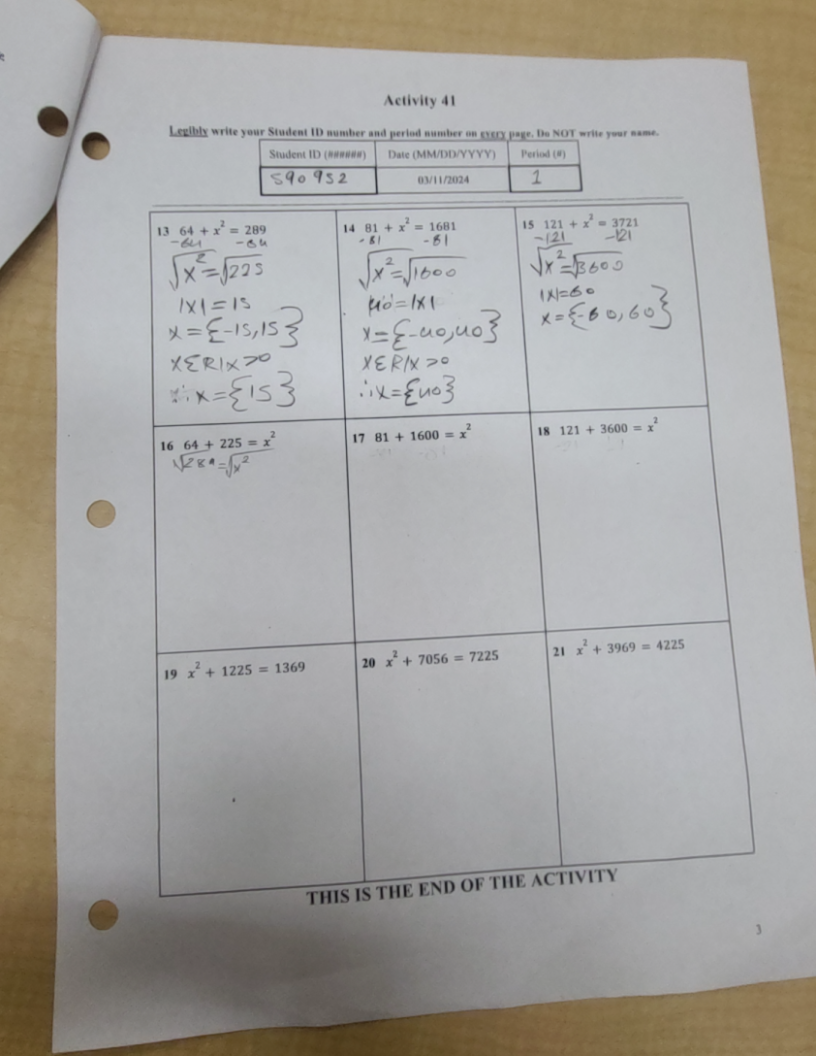 Activity 41
Legibly write your Student ID number and period number on every page. Do NOT write your name.
Student ID (######) Date (MM/DD/YYYY) Period (#)
590952 03/11/2024 1
13 64 + x² = 289
-64 -64
√x² = √225
|x| = 15
x = {-15, 15}
x ∈ R | x > 0
∴ x = {15}
14 81 + x² = 1681
-81 -81
√x² = √1600
40 = |x|
x = {-40, 40}
x ∈ R | x > 0
∴ x = {40}
15 121 + x² = 3721
-121 -121
√x² = √3600
|x| = 60
x = {-60, 60}
16 64 + 225 = x²
√289 = √x²
17 81 + 1600 = x²
18 121 + 3600 = x²
19 x² + 1225 = 1369
20 x² + 7056 = 7225
21 x² + 3969 = 4225
THIS IS THE END OF THE ACTIVITY
3